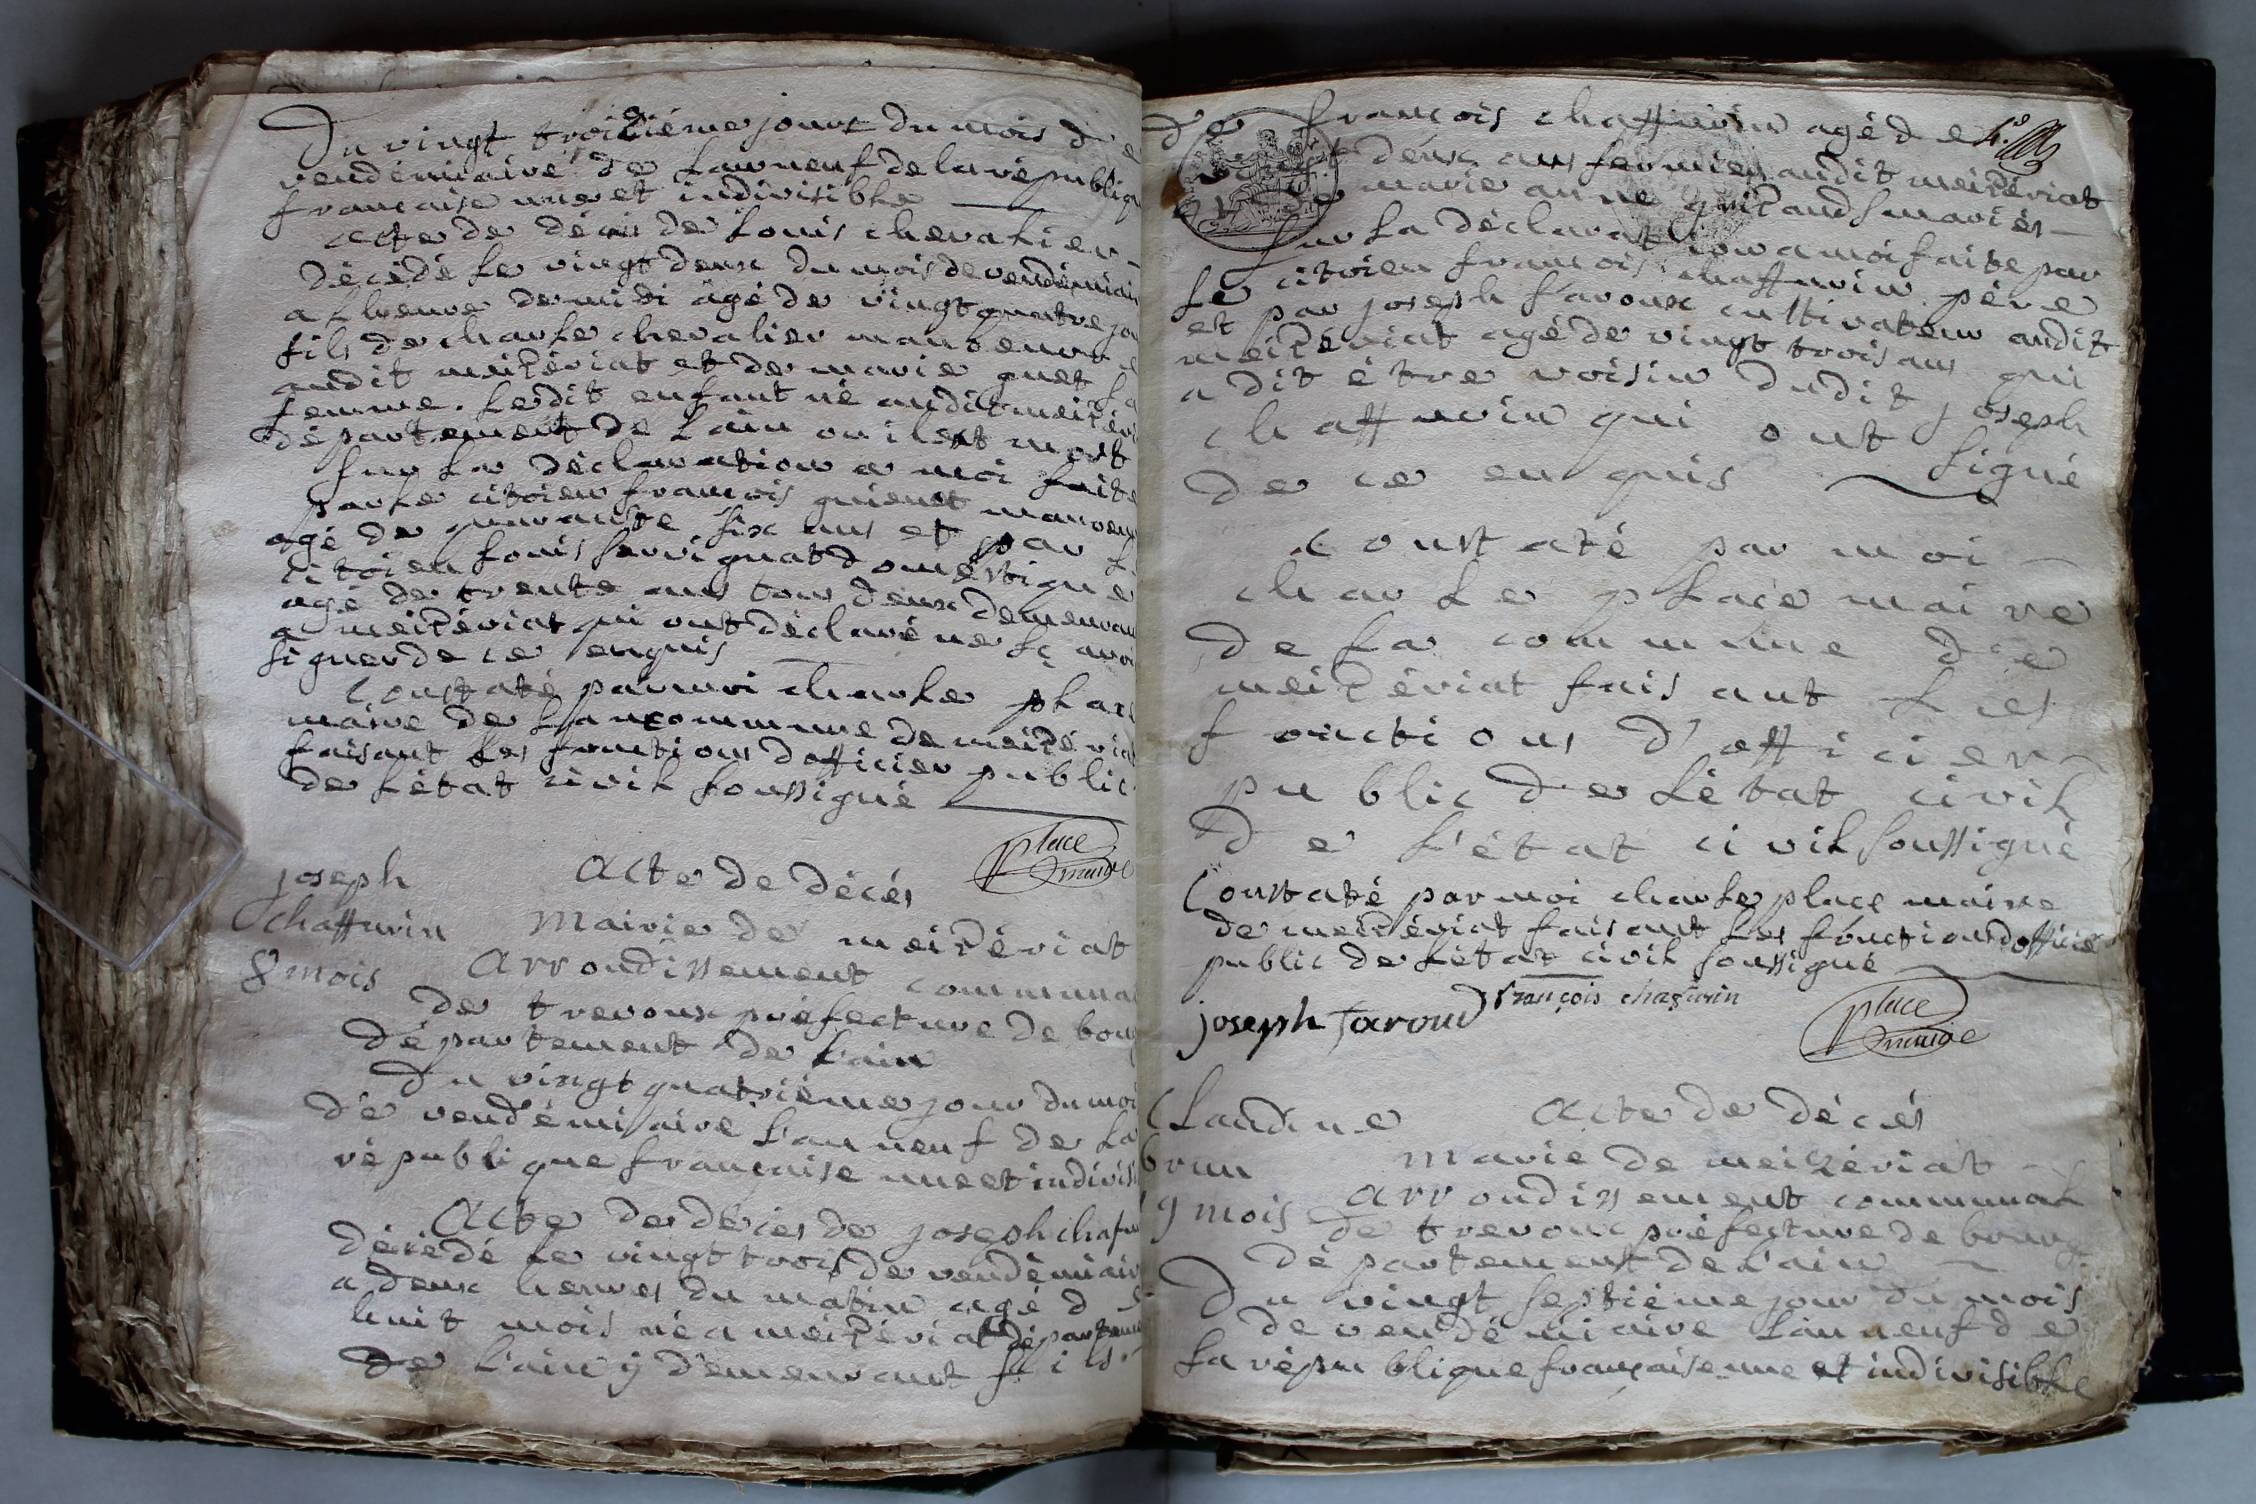 Du vingt troisiéme jours du mois de
vendémiaire de Lan neuf de la républiq
française une et indivisible
acte de décés de Louis chevalier
décédé Le vingt deux du mois de vendémiair
a Lheure de midi âgé de vingt quatre jou
fils de charle chevalier manoeuvre
audit meizériat et de marie guet sa
femme. Ledit enfant né audit meizéri
département de Lain ou il est mort
sur La déclaration a moi faite
par Le citoien françois manoeuv
agé de quarante six ans et par L
citoien Louis domestique
agé de trente ans tous deux demeuran
a meizériat qui ont déclaré ne sçavoi
signer de ce enquis
Constaté par moi charle place
maire de La commune de meizériat
faisant Les fonctions dofficier public
de Létat civil soussigné
place
maire
joseph
chaffurin
8 mois
Acte de décés
Mairie de meizériat
Arrondissement communal
de trevoux préfecture de bour
département de Lain
Du vingt quatriéme jour du moi
de vendémiaire L'an neuf de La
république française une et indivisi
Acte de décés de joseph chafu
décédé Le vingt trois de vendémiair
a deux heures du matin agé de
huit mois né a meizériat département
de L'ain y demeurant fils
de françois chaffurin agé de
deux ans fermier audit meizériat
et de marie anne mariés
sur La déclaration a moi faite par
Le citoien françois chaffurin pére
et par joseph faroux cultivateur audit
meizériat agé de vingt trois ans qui
a dit étre voisin dudit joseph
chaffurin qui ont signé
de ce enquis
Constaté par moi
charle place maire
de La commune de
meizériat faisant Les
fonctions d'officier
public de Létat civil
de L'état civil soussigné
Constaté par moi charle place maire
de meizériat faisant Les fonctions dofficié
public de Létat civil soussigné
françois chafurin
joseph faroud
place
maire
Claudine
brun
9 mois
Acte de décés
Marie de meizériat
Arrondissement communal
de trevoux préfecture de bourg
département de L'ain
Du vingt septiéme jour du mois
de vendémiaire Lan neuf de
La république française une et indivisible